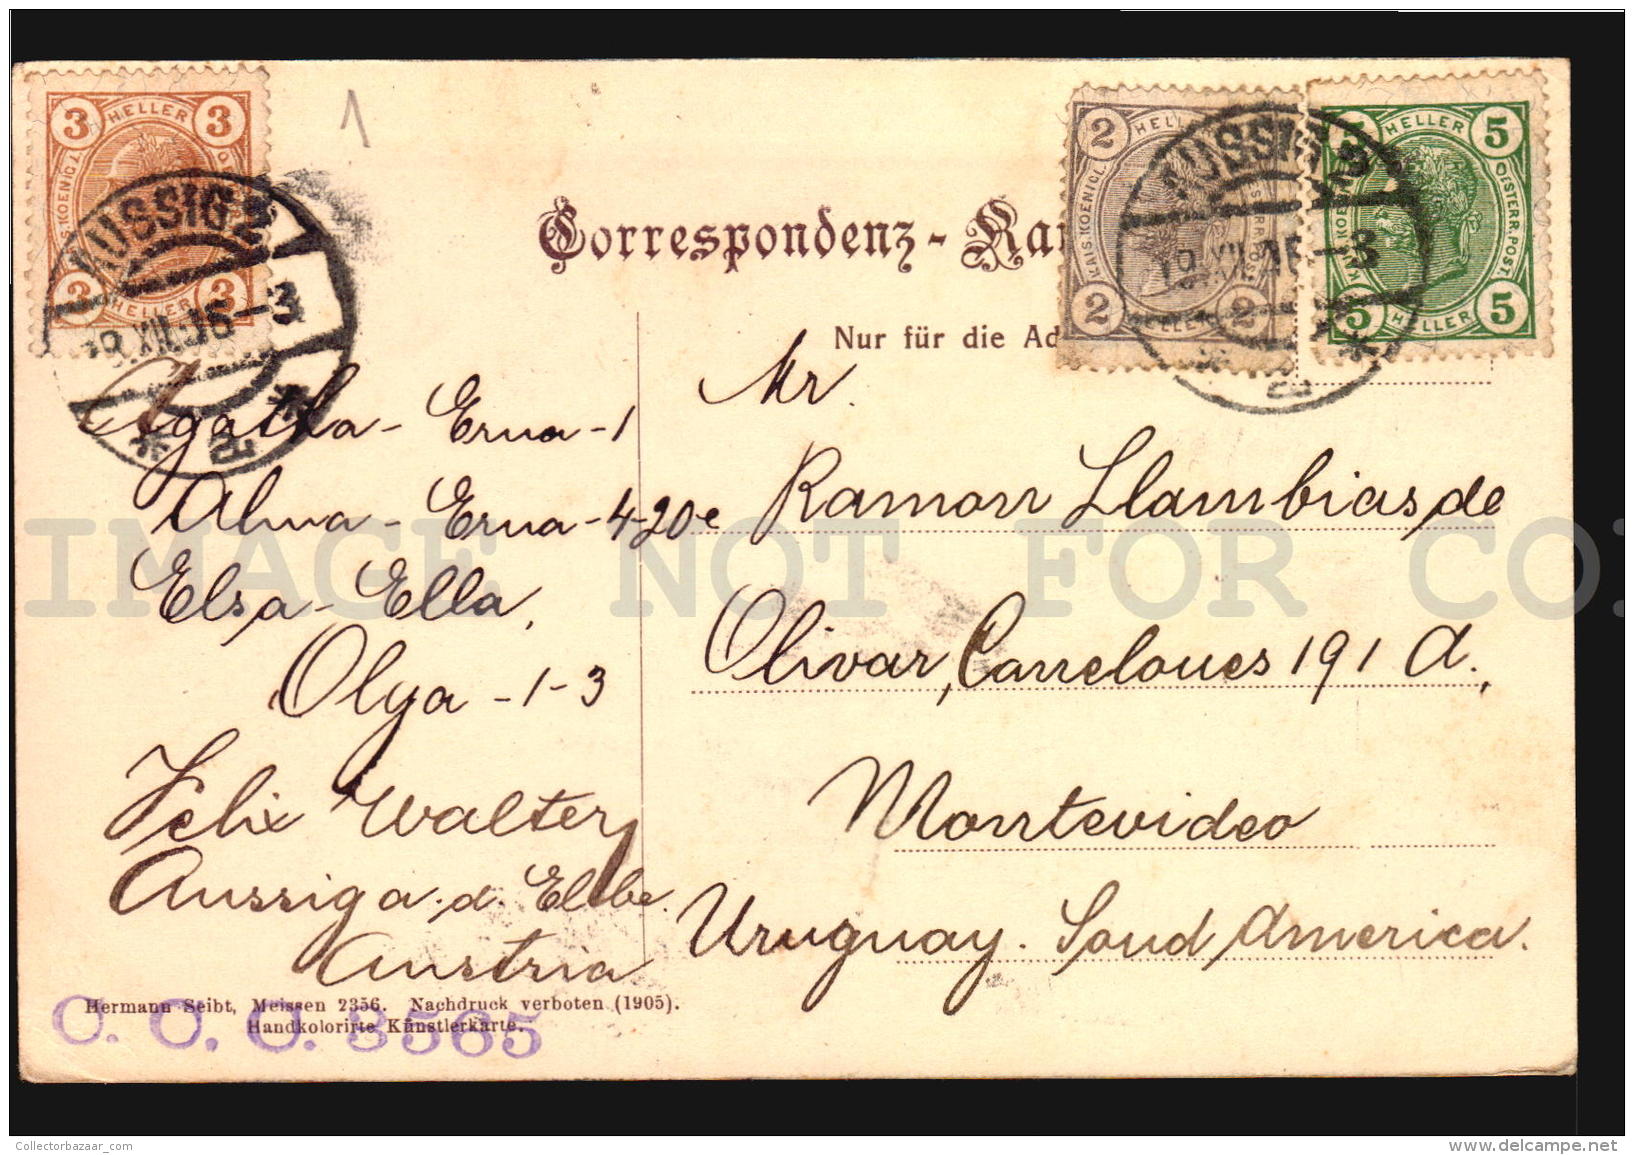 3 HELLER 3
KAIS. KOENIGL.
3 HELLER 3
AUSSIG 2
XII. -3
2a
1
2 HELLER
KAIS. KOENIGL.
OESTERR. POST
2 HELLER 2
5 HELLER 5
OESTERR. POST.
5 HELLER 5
AUSSIG
XII. -3
Correspondenz-Kar
Nur für die Ad
Agatha - Erna - 1
Alma - Erna - 4-20e
Elsa - Ella,
Olga - 1 - 3
Felix Walter
Aussig a. d. Elbe.
Austria
Mr.
Ramon Llambias de
Olivar, Carreloues 191 A.,
Montevideo
Uruguay. Soud America.
Hermann Seibt, Meissen 2356. Nachdruck verboten (1905).
Handkolorirte Künstlerkarte.
C. O. C. 3565
IMAGE NOT FOR CO
Collectorbazaar_com
www.delcampe.net